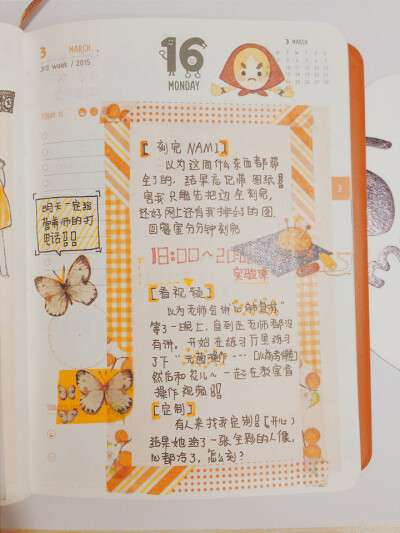 3 MARCH
3rd week / 2015
16
MONDAY
3 MARCH
TODAY IS
3
【刻完 NAMI】
以为这周什么东西都带
全了的, 结果忘记带 图纸!!
害我只能先把边全刻完,
还好网上还有我
的图
回寝室分分钟刻完
18:00~20:00
实验课
明天一定给
营养师的打
电话!!
【看视频】
以为老师会讲
等了一晚上, 直到走老师都没
有讲, 开始在练习厅里练习
了下“无菌操作”
然后和花儿~ 一起在教室看
操作视频!!
【定制】
有人来找我定制!【开心】
结果她给了一张全彩的人像,
心都冷了, 怎么刻?